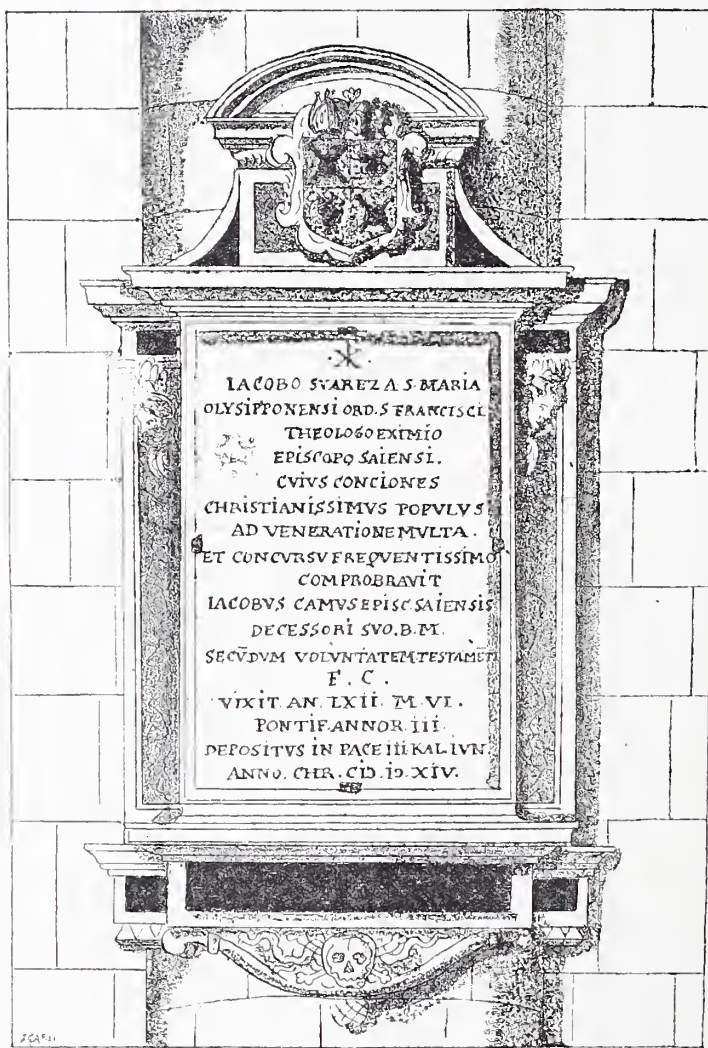 IACOBO SVAREZ A S. MARIA
OLYSIPPONENSI ORD. S FRANCISCI.
THEOLOGO EXIMIO
EPISCOPO SAIENSI.
CVIVS CONCIONES
CHRISTIANISSIMVS POPVLVS
AD VENERATIONE MVLTA.
ET CONCVRSV FREQVENTISSIMO
COMPROBRAVIT
IACOBVS CAMVS EPISC. SAIENSIS
DECESSORI SVO. B. M.
SECV̄DVM VOLVNTATEM TESTAMĒTI
F. C.
VIXIT. AN. LXII. M. VI.
PONTIF. ANNOR. III.
DEPOSITVS IN PACE IIIKAL. IVN.
ANNO. CHR. CIↃ. IↃ. XIV.